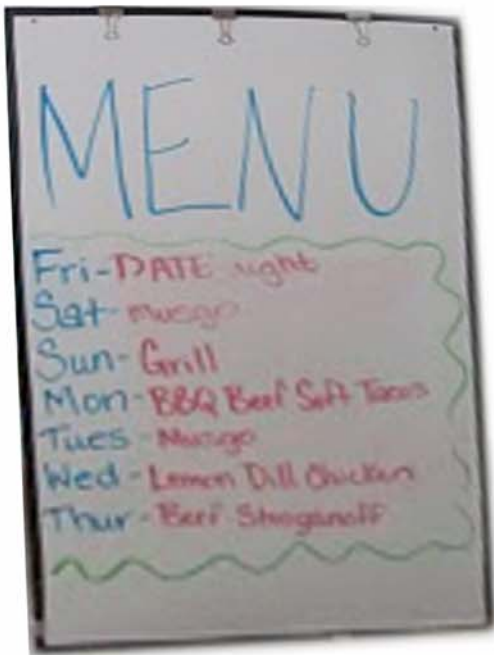 MENU
Fri-DATE night
Sat-musgo
Sun-Grill
Mon-BBQ Beef Soft Tacos
Tues-Musgo
Wed-Lemon Dill Chicken
Thur-Beef Stroganoff